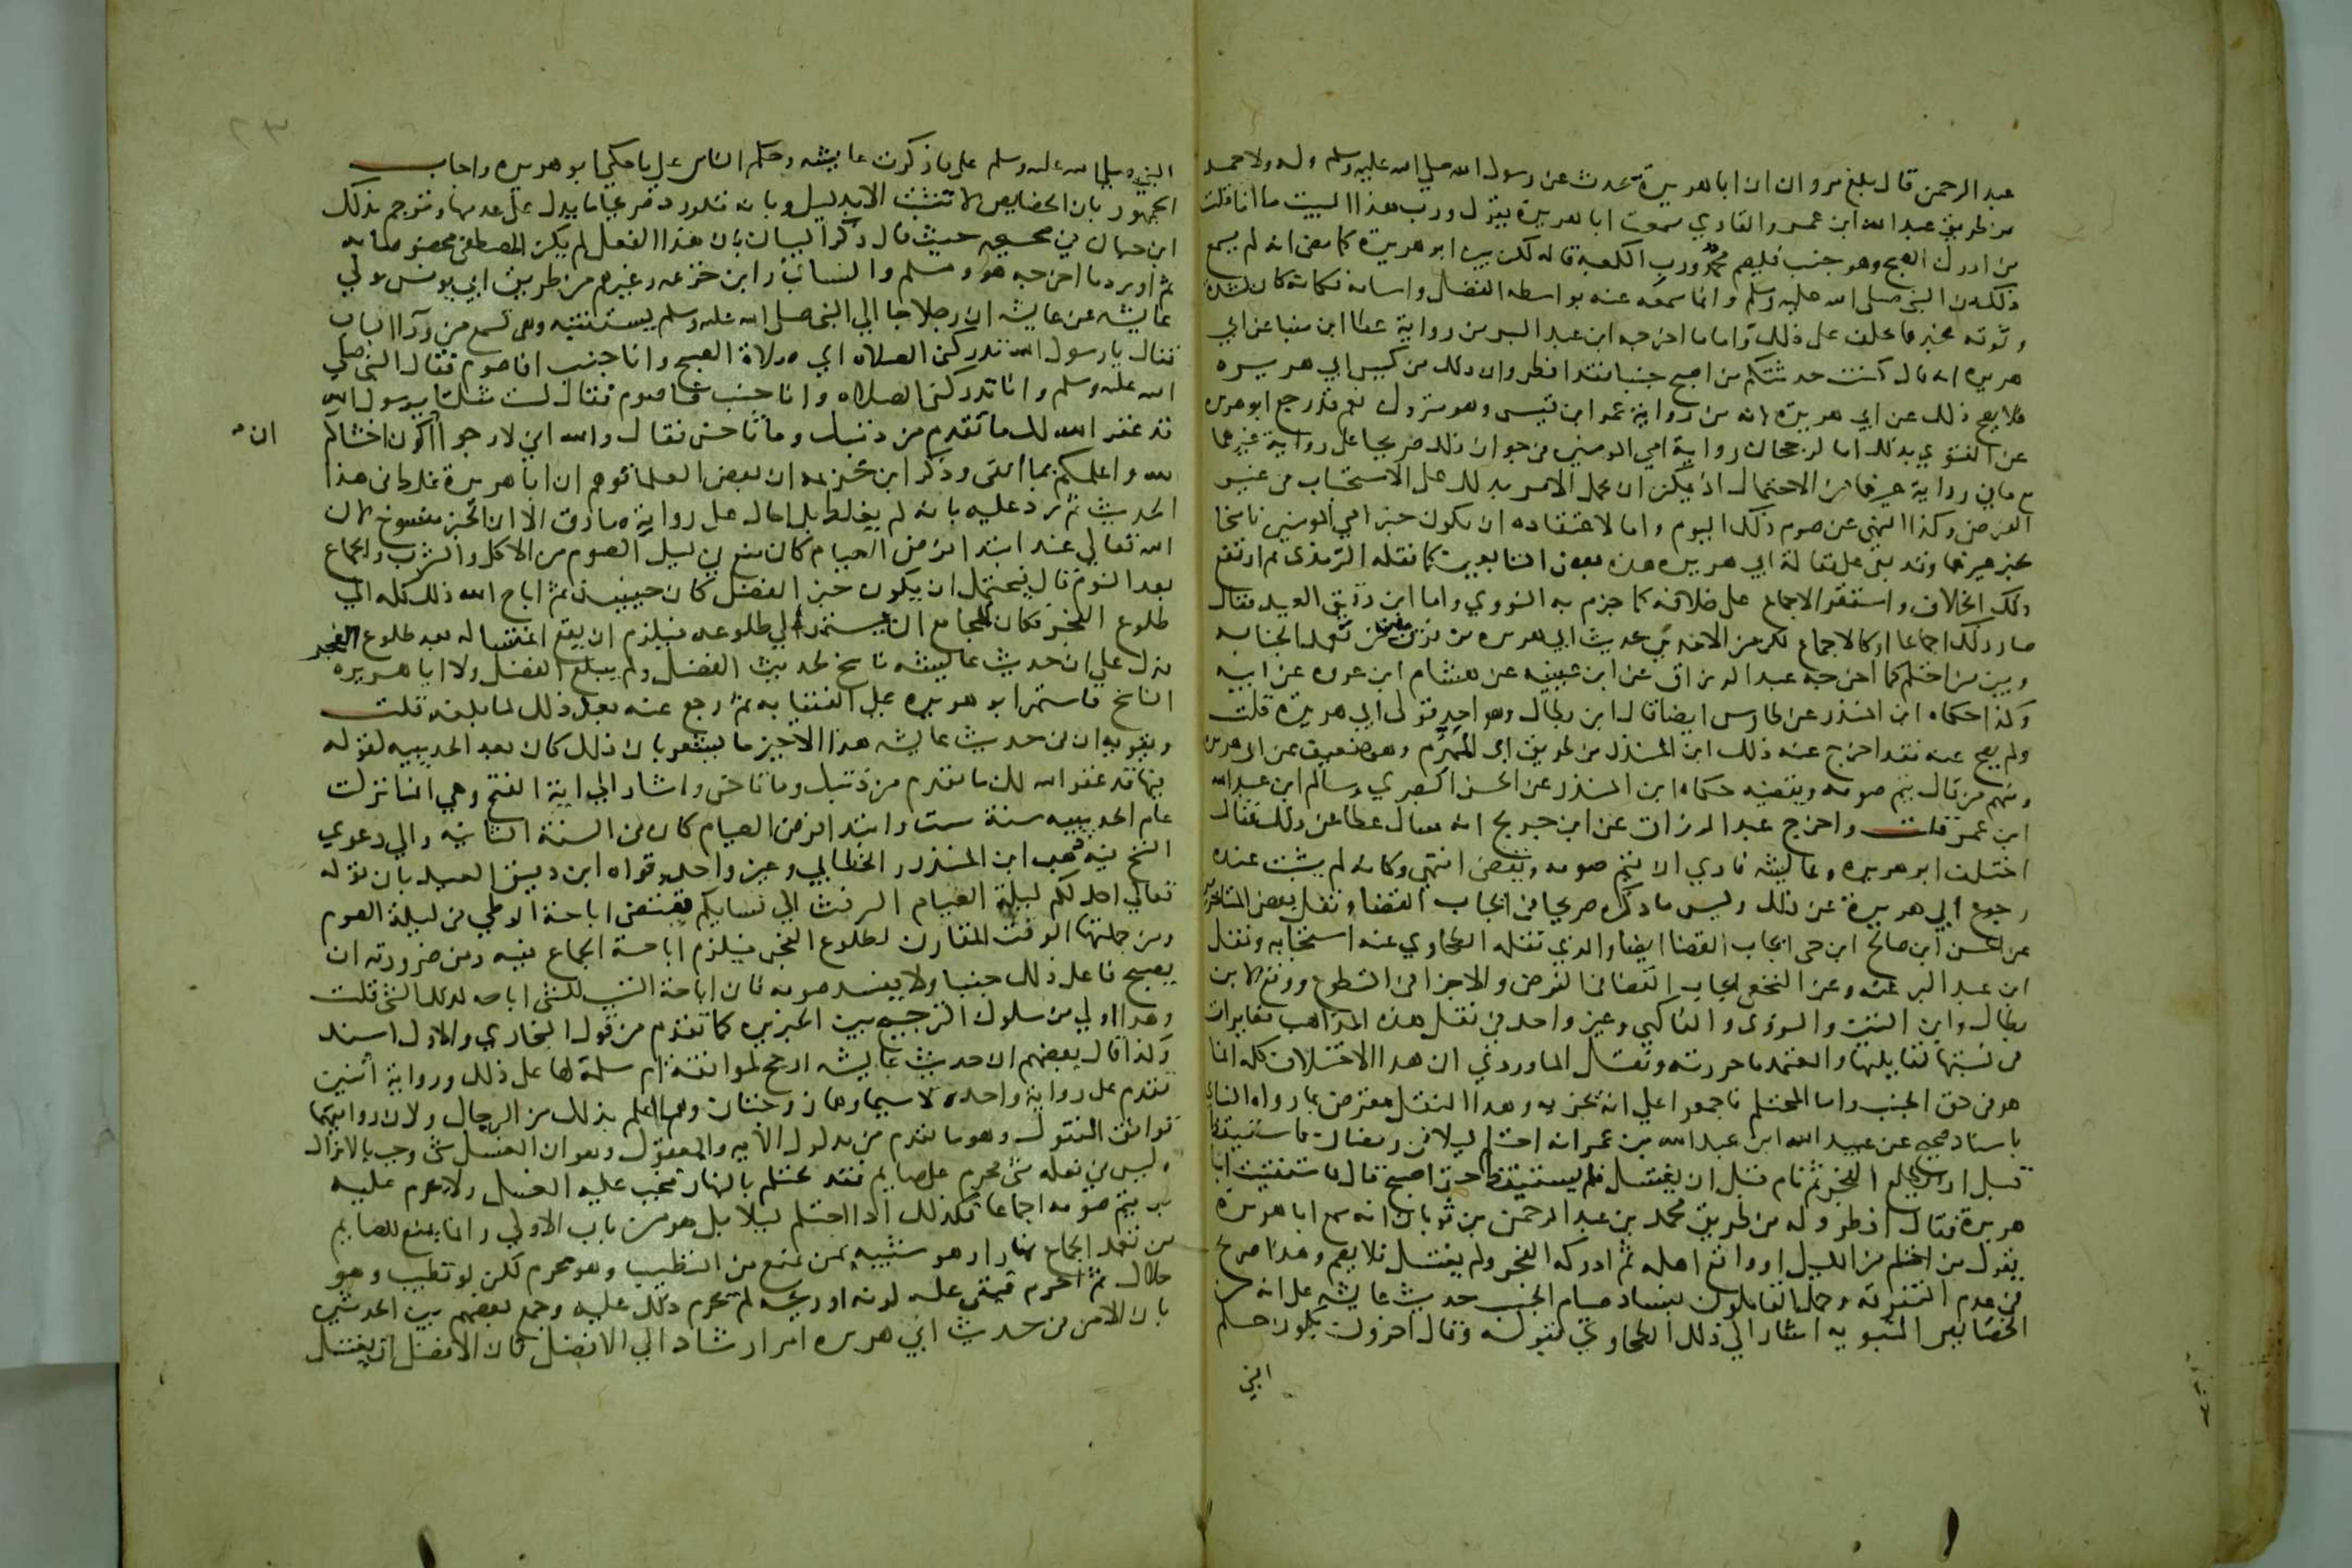 عبد الرحمن قال بلغ مروان ان ابا هريرة يحدث عن رسول الله صلي الله عليه وسلم وله ولاحمد
من طريق عبد الله ابن عمرو القاري سمعت ابا هريرة يقول ورب هذا البيت ما انا قلت
من ادرك الصبح وهو جنب فليصم محمد ورب الكعبة قاله لكن بين ابو هريرة كما مضى انه لم يسمع
ذلك من النبي صلى الله عليه وسلم وانما سمعه عنه بواسطه الفضل واسامه فكانه كان لشدة
وثوقه بخبرهما يحلف على ذلك واما ما اخرجه ابن عبد البر من رواية عطا ابن مينا عن ابي
هريره انه قال كنت حدثتكم من اصبح جنبا فقد افطر وان ذلك من كيس ابي هريره
فلا يصح ذلك عن ابي هريره لانه من رواية عمر ابن قيس وهو متروك نعم قد رجع ابو هريره
عن الفتوي بذلك اما لرجحان رواية امي المومنين في جواز ذلك صريحا على رواية غيرهما
مع ما في رواية غيرهما من الاحتمال اذ يمكن ان يحمل الامر بذلك على الاستحباب في غير
الفرض وكذا النهي عن صوم ذلك اليوم واما لاعتقاده ان يكون خبر امي المومنين ناسخا
لخبر غيرهما وقد بقي على مقالة ابي هريره هذه بعض التابعين كما نقله الترمذي ثم ارتفع
ذلك الخلاف واستقر الاجماع على خلافه كما جزم به النووي واما ابن دقيق العيد فقال
صار ذلك اجماعا او كالاجماع لكن من الاخذين بحديث ابي هريره من فرق بين من تعمد الجنابه
وبين من احتلم كما اخرجه عبد الرزاق عن ابن عيينه عن هشام ابن عروه عن ابيه
وكذا حكاه ابن المنذر عن طاوس ايضا قال ابن بطال وهو احد قولي ابي هريرة قلت
ولم يصح عنه فقد اخرج عنه ذلك ابن المنذر من طريق ابي المهزم وهو ضعيف عن ابي هريره
ومنهم من قال يتم صومه ويقضيه حكاه ابن المنذر عن الحسن البصري وسالم ابن عبد الله
ابن عمر قلت واخرج عبد الرزاق عن ابن جريج انه سال عطا عن ذلك فقال
اختلف ابو هريره وعايشه فاري ان يتم صومه ويقضى انتهى وكانه لم يثبت عنده
رجوع ابي هريرة عن ذلك وليس ما ذكره صريحا في ايجاب القضا ونقل بعض المتاخرين
عن الحسن ابن صالح ابن حي ايجاب القضا ايضا والذي نقله الطحاوي عنه استحبابه ونقل
ابن عبد البر عنه وعن النخعي ايجاب القضا في الفرض والاجزا في التطوع ووقع لابن
بطال وابن التين والنووي والفاكهي وغير واحد في نقل هذه المذاهب مغايرات
في نسبتها لقايليها والمعتمد ما حررته ونقل الماوردي ان هذا الاختلاف كله انما
هو في حق الجنب واما المحتلم فاجمعوا علي انه يجزيه وهذا النقل معترض بما رواه النساي
باسناد صحيح عن عبيد الله ابن عبد الله بن عمر انه احتلم ليلا في رمضان فاستيقظ
قبل ان يطلع الفجر ثم نام قبل ان يغتسل فلم يستيقظ حتى اصبح قال فاستفتيت ابا
هريرة فقال افطر وله من طريق محمد بن عبد الرحمن بن ثوبان انه سمع ابا هريرة
يقول من احتلم من الليل او واقع اهله ثم ادركه الفجر ولم يغتسل فلا يصم وهذا صريح
في عدم التفرقة وحمل القايلون بفساد صيام الجنب حديث عايشه على انه من
الخصايص النبويه اشار الي ذلك الطحاوي بقوله وقال اخرون يكون حكم
النبي
النبي صلى الله عليه وسلم على ما ذكرت عايشه وحكم الناس على ما حكى ابو هريره واجاب
الجمهور بان الخصايص لا تثبت الا بدليل وبانه قد ورد صريحا ما يدل على عدمها وترجم بذلك
ابن حبان في صحيحه حيث قال ذكر البيان بان هذا الفعل لم يكن المصطفى مخصوصا به
ثم اورد ما اخرجه هو ومسلم والنساي وابن خزيمه وغيرهم من طريق ابي يونس مولي
عايشه عن عايشه ان رجلا جا الي النبي صلى الله عليه وسلم يستفتيه وهي تسمع من ورآ الباب
فقال يا رسول الله تدركني الصلاه اي صلاة الصبح وانا جنب افاصوم فقال النبي صلي
الله عليه وسلم وانا تدركني الصلاه وانا جنب فاصوم فقال لست مثلنا يا رسول الله
قد غفر الله لك ما تقدم من ذنبك وما تاخر فقال والله اني لارجوا اكون اخشاكم
ان
لله واعلمكم بما اتقى وذكر ابن خزيمه ان بعض العلما توهم ان ابا هريرة غلط في هذا
الحديث ثم رد عليه بانه لم يغلط بل احال على رواية صادق الا ان الخبر منسوخ لان
الله تعالي عند ابتدا فرض الصيام كان منع في ليل الصوم من الاكل والشرب والجماع
بعد النوم قال فيحتمل ان يكون خبر الفضل كان حينيذ ثم اباح الله ذلك كله الي
طلوع الفجر فكان للمجامع ان يستمر الي طلوعه فيلزم ان يقع اغتساله بعد طلوع الفجر
فدل علي ان حديث عايشه ناسخ لحديث الفضل ولم يبلغ الفضل ولا ابا هريره
الناسخ فاستمر ابو هريره على الفتيا به ثم رجع عنه بعد ذلك لما بلغه قلت
ويقويه ان في حديث عايشه هذا الاخير ما يشعر بان ذلك كان بعد الحديبيه لقوله
فيها قد غفر الله لك ما تقدم من ذنبك وما تاخر واشار الي اية الفتح وهي انما نزلت
عام الحديبيه سنة ست وابتدا فرض الصيام كان في السنة الثانيه والي دعوي
النسخ فيه ذهب ابن المنذر والخطابي وغير واحد وقواه ابن دقيق العيد بان قوله
تعالي احل لكم ليلة الصيام الرفث الي نسايكم يقتضي اباحة الوطي في ليلة الصوم
ومن جملتها الوقت المقارن لطلوع الفجر فيلزم اباحة الجماع فيه ومن ضرورته ان
يصبح فاعل ذلك جنبا ولا يفسد صومه فان اباحة التسبب للشي اباحه لذلك الشي قلت
وهذا اولي من سلوك الترجيح بين الخبرين كما تقدم من قول البخاري والاول اسند
وكذا قال بعضهم ان حديث عايشه ارجح لموافقة ام سلمة لها على ذلك ورواية اثنين
تقدم على رواية واحد لا سيما وهما زوجتان وهما اعلم بذلك من الرجال ولان روايتهما
توافق المنقول وهو ما تقدم من مدلول الاية والمعقول وهو ان الغسل شي وجب بالانزال
وليس في فعله شي محرم على صايم فقد يحتلم بالنهار فيجب عليه الغسل ولا يحرم عليه
بل يتم صومه اجماعا فكذلك اذا احتلم ليلا بل هو من باب الاولي وانما يمنع للصايم
من تعمد الجماع نهارا وهو شبيه بمن يمنع من التطيب وهو محرم لكن لو تطيب وهو
حلال ثم احرم فبقي عليه لونه او ريحه لم يحرم ذلك عليه وجمع بعضهم بين الحديثين
بان الامر في حديث ابي هريره امر ارشاد الي الافضل فان الافضل ان يغتسل